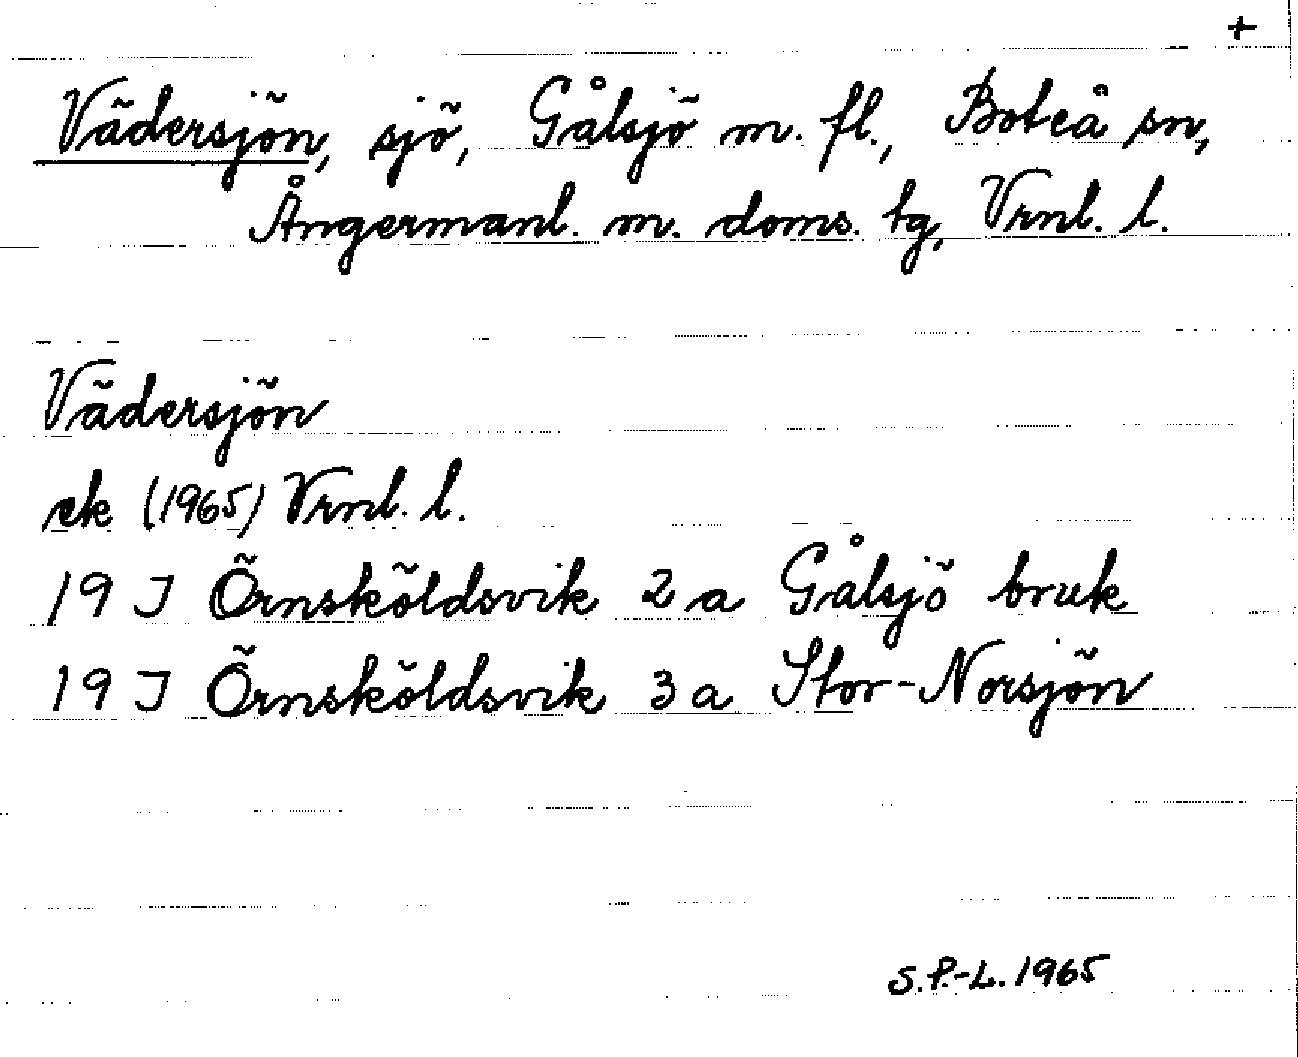 +
Vädersjön, sjö, Gålsjö m. fl., Boteå sn,
Ångermanl. m. doms. tg, Vrnl. l.
Vädersjön
ek (1965) Vrnl. l.
19 J Örnsköldsvik 2 a Gålsjö bruk
19 J Örnsköldsvik 3 a Stor-Norsjön
S.P.-L. 1965